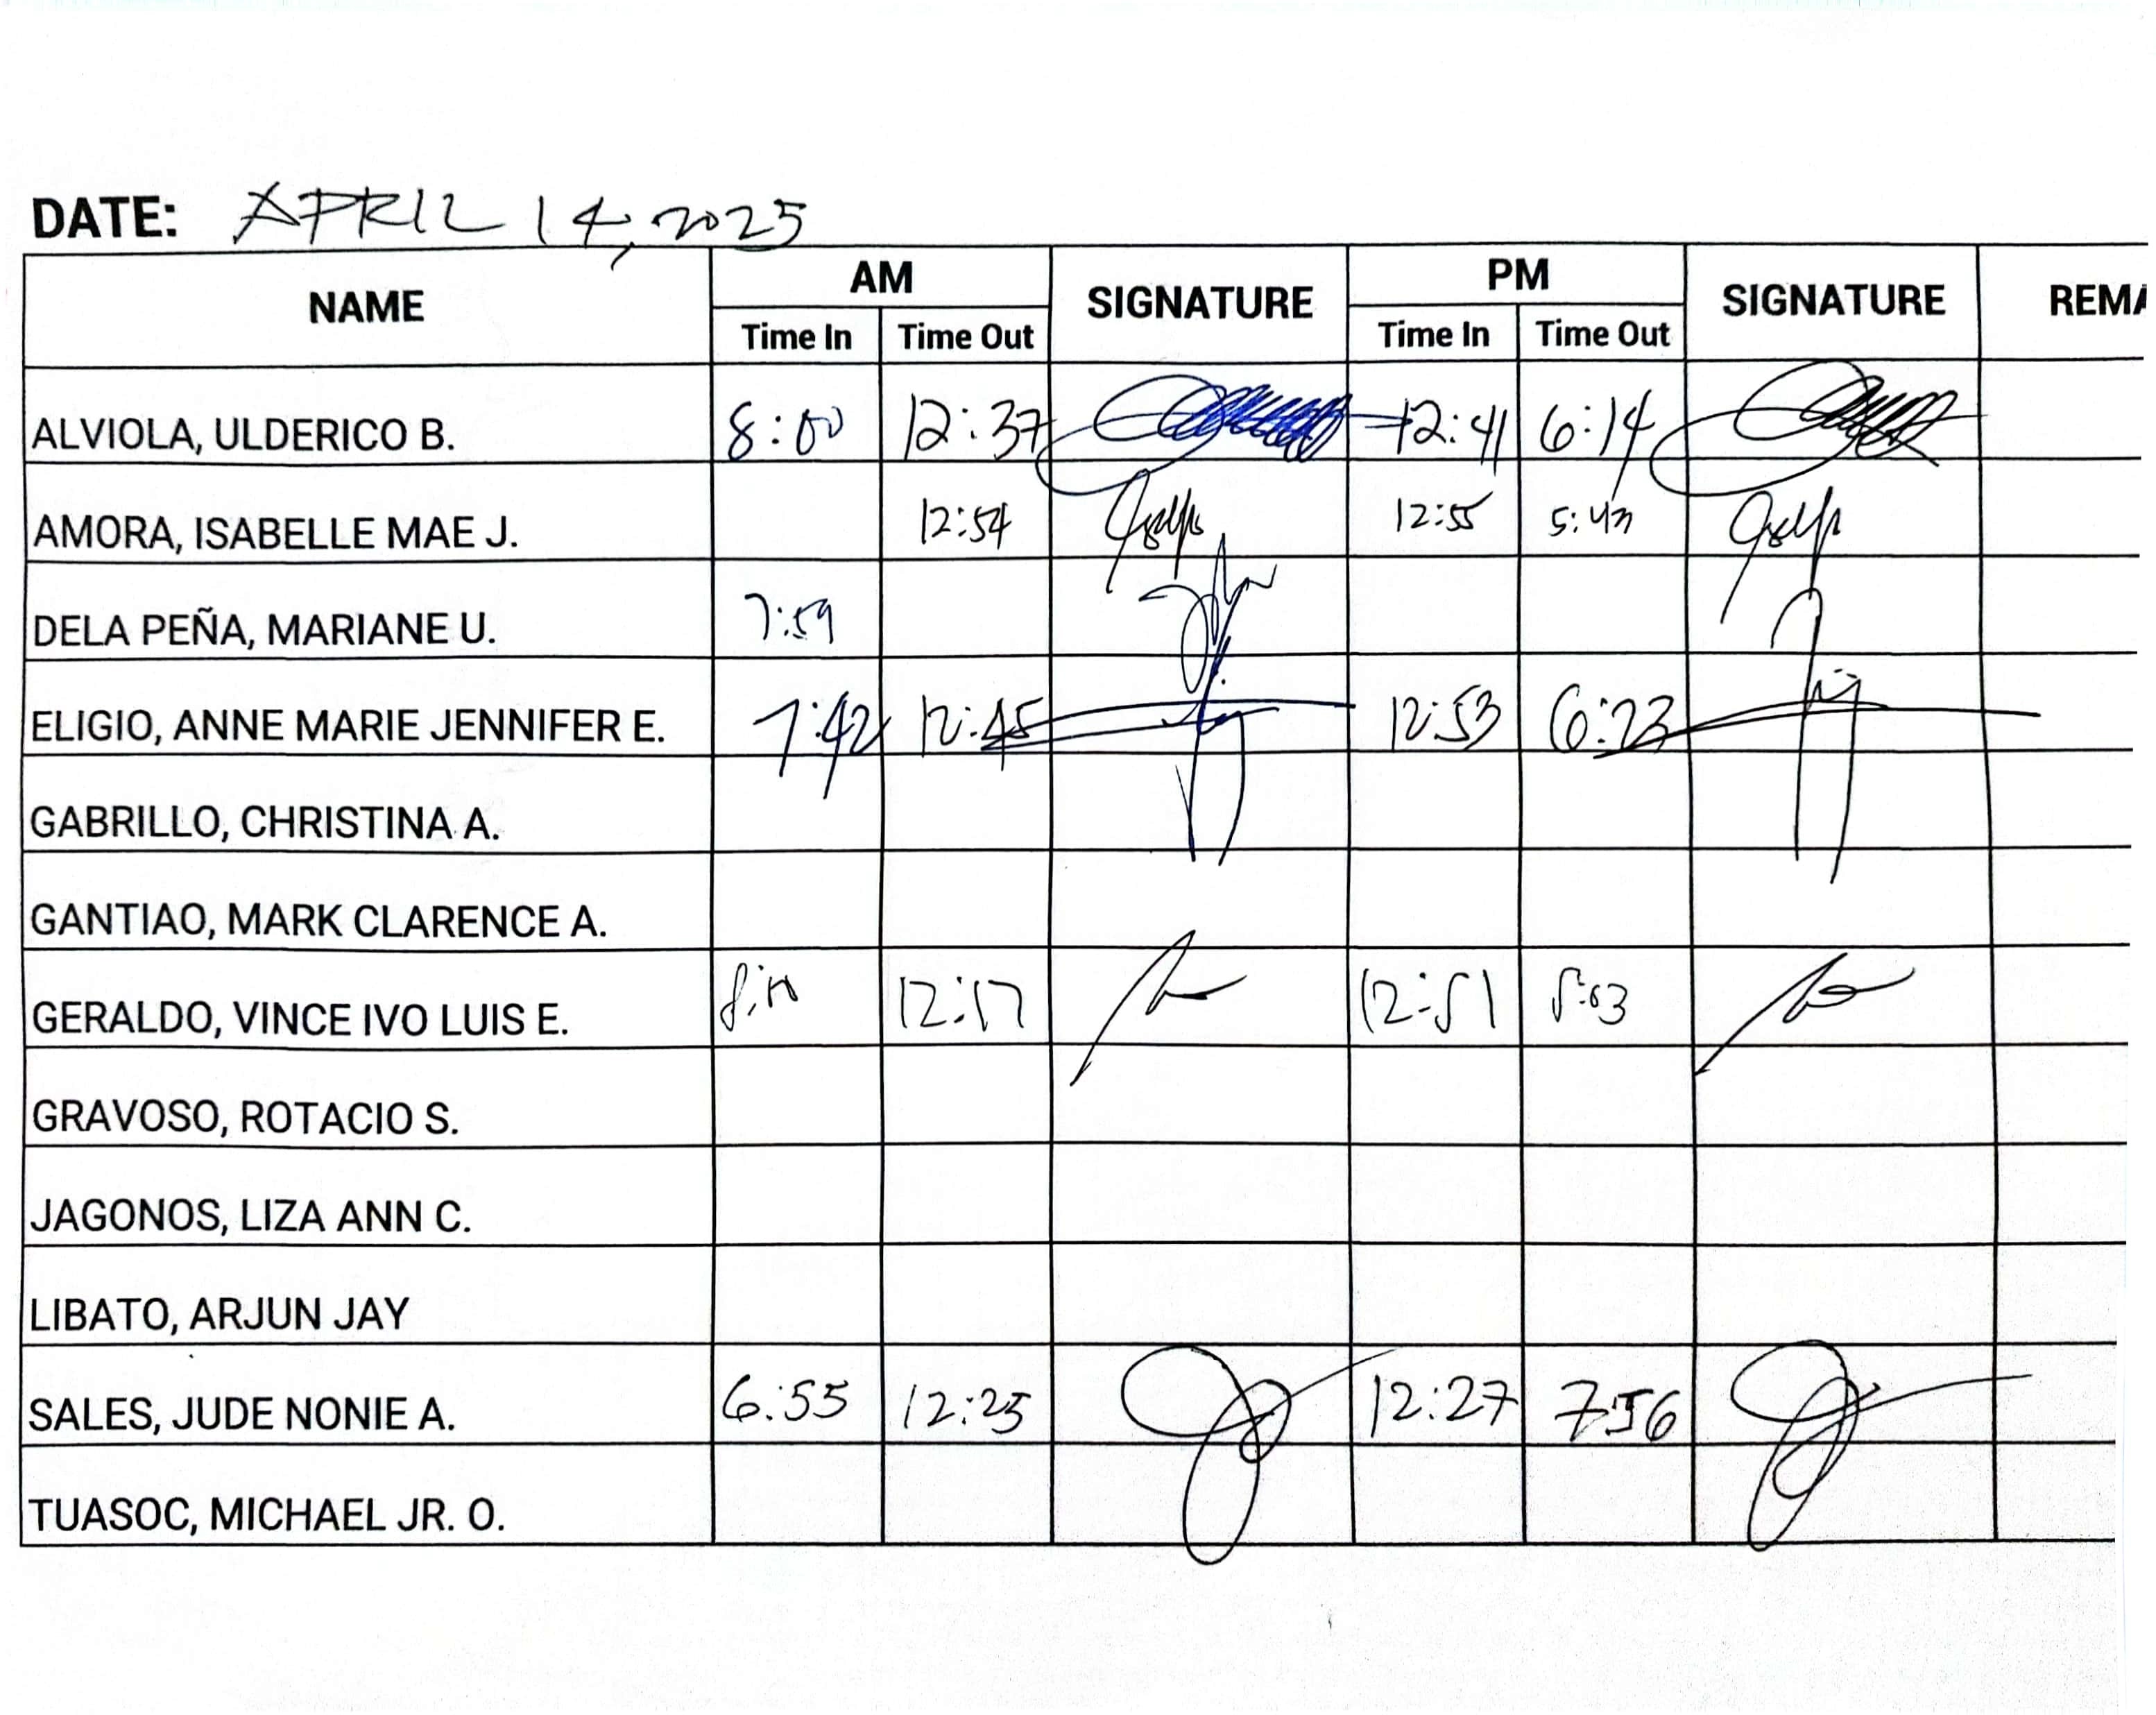 DATE: APRIL 14, 2025
NAME AM SIGNATURE PM SIGNATURE REMA
Time In Time Out Time In Time Out
ALVIOLA, ULDERICO B. 8:00 12:37 12:41 6:14
AMORA, ISABELLE MAE J. 12:54 12:55 5:43
DELA PEÑA, MARIANE U. 7:59
ELIGIO, ANNE MARIE JENNIFER E. 7:42 12:45 12:53 6:23
GABRILLO, CHRISTINA A.
GANTIAO, MARK CLARENCE A.
GERALDO, VINCE IVO LUIS E. 12:17 12:51 5:03
GRAVOSO, ROTACIO S.
JAGONOS, LIZA ANN C.
LIBATO, ARJUN JAY
SALES, JUDE NONIE A. 6:55 12:25 12:27 7:56
TUASOC, MICHAEL JR. O.